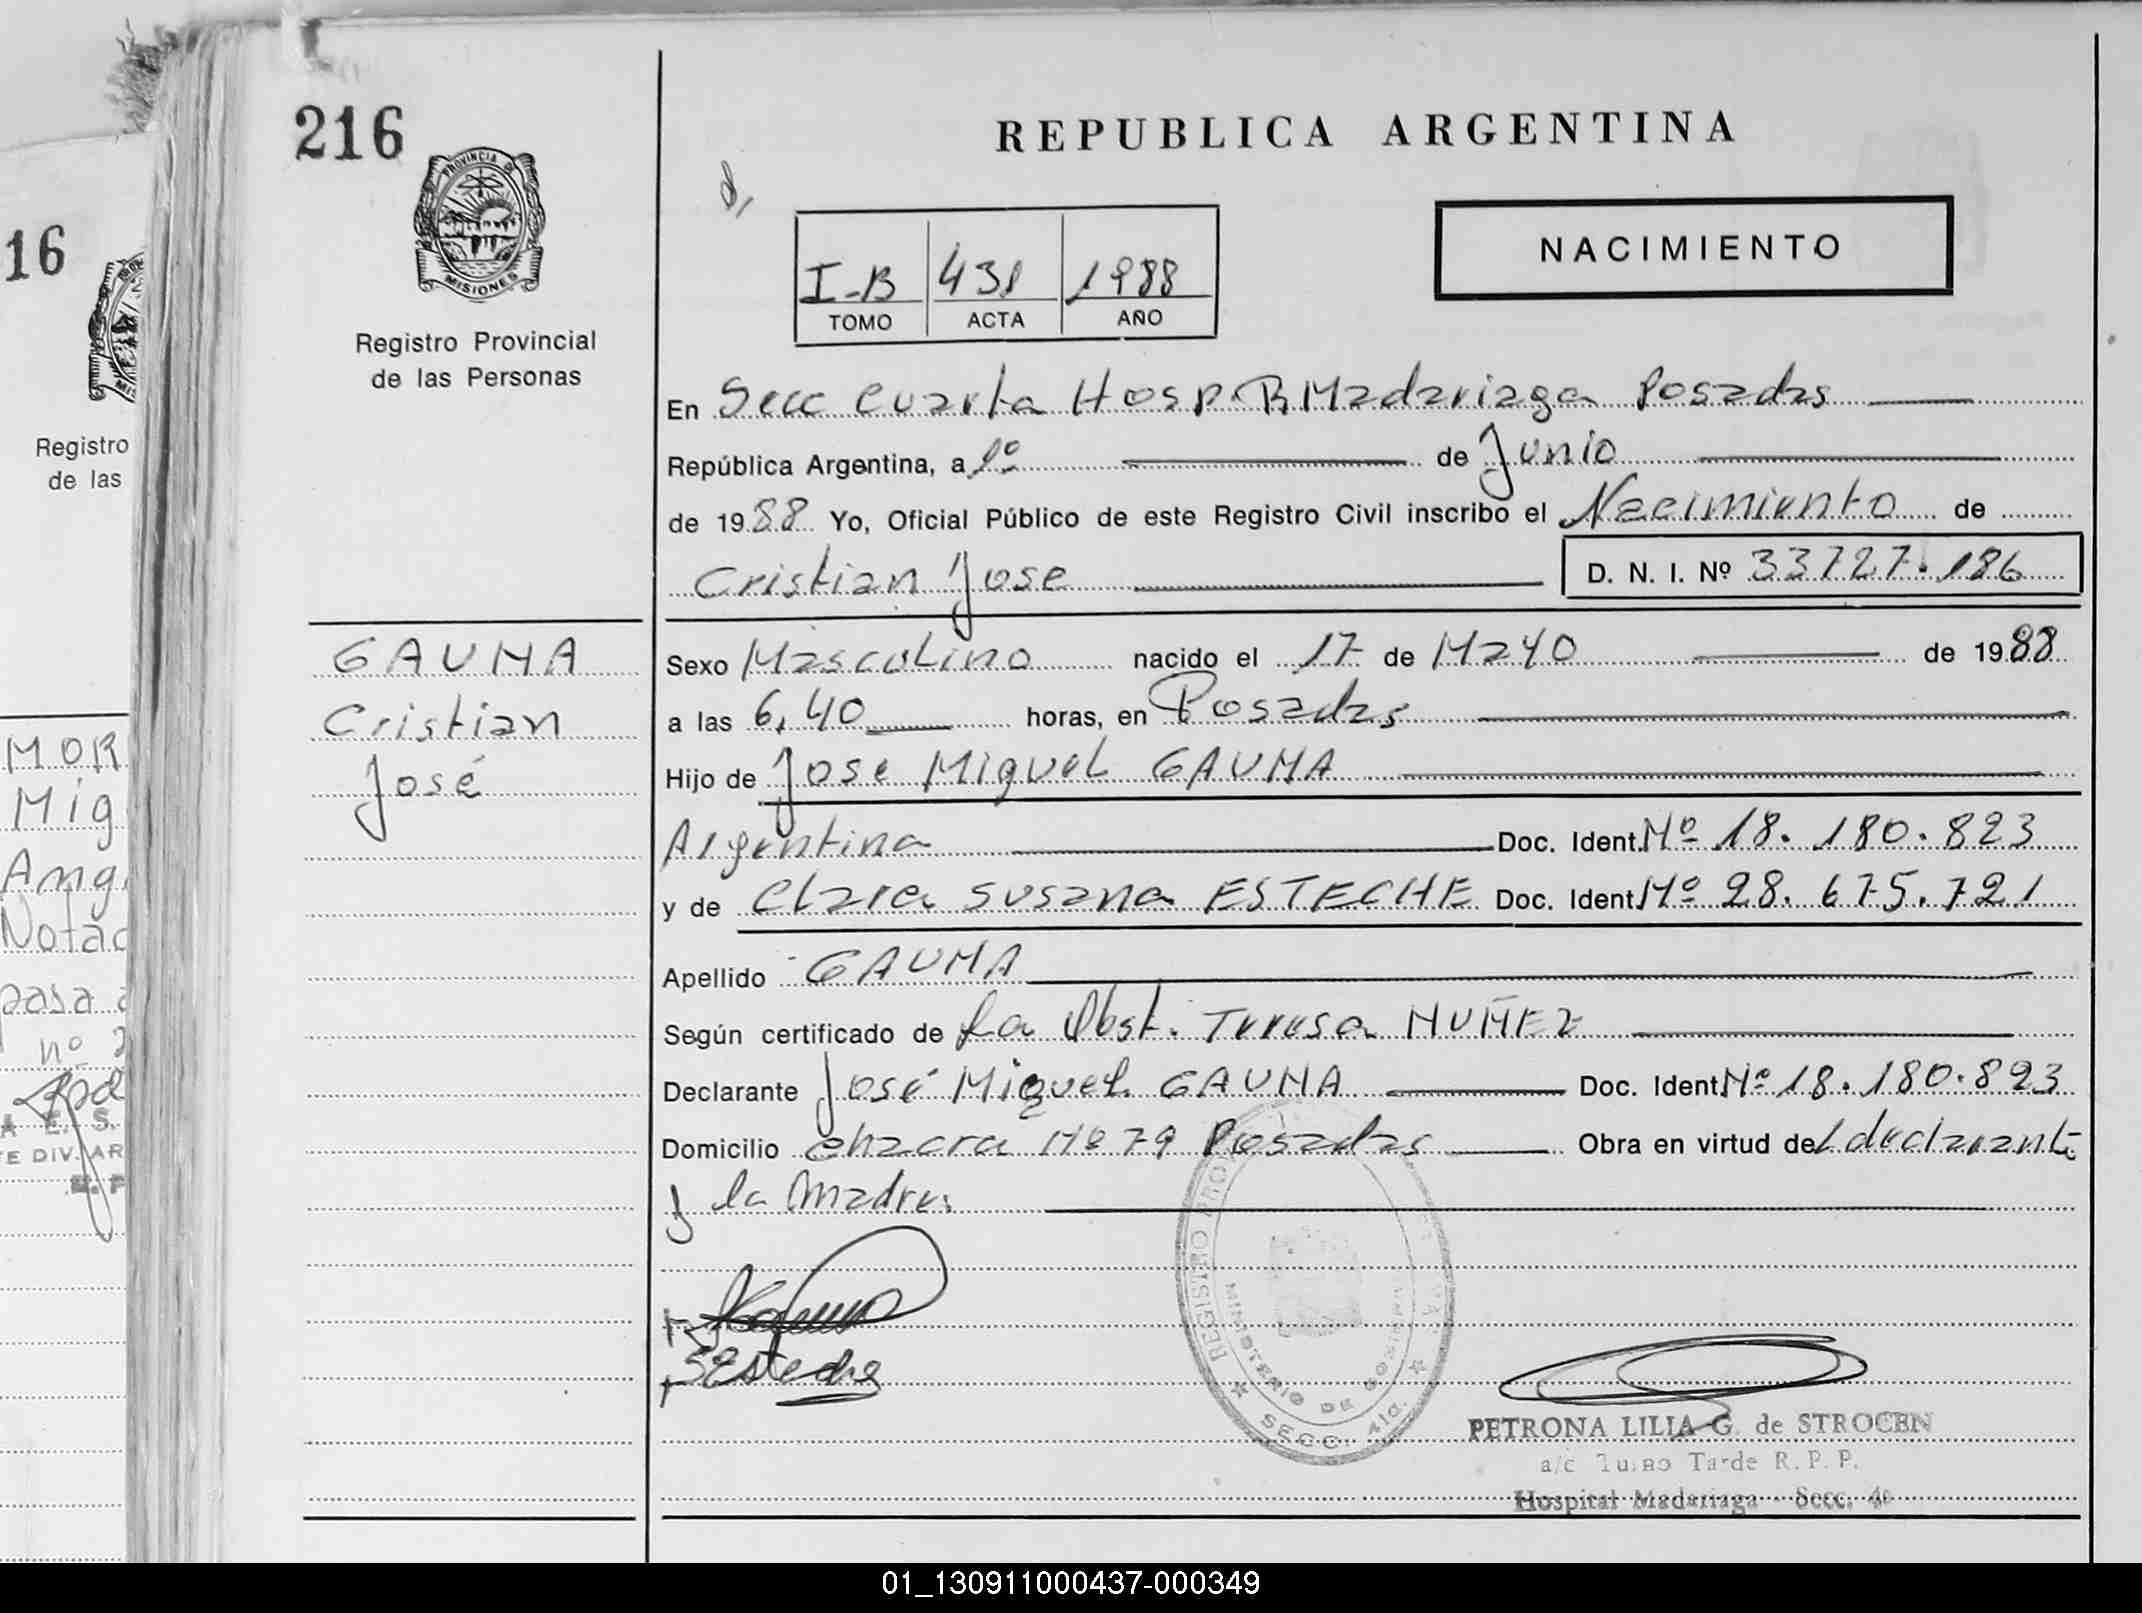 216
PROVINCIA D
MISIONES
Registro Provincial
de las Personas
REPUBLICA ARGENTINA
NACIMIENTO
I-B 431 1988
TOMO ACTA AÑO
En Secc Cuarta Hosp. R Madariaga Posadas
República Argentina, a 1º de Junio
de 1988 Yo, Oficial Público de este Registro Civil inscribo el Nacimiento de
Cristian Jose D. N. I. Nº 33727.186
GAUNA
Cristian
José
Sexo Masculino nacido el 17 de Mayo de 1988
a las 6,40 horas, en Posadas
Hijo de Jose Miguel GAUNA
Argentina Doc. Ident. Nº 18.180.823
y de Clara Susana ESTECHE Doc. Ident Nº 28.675.721
Apellido GAUNA
Según certificado de La Obst. Teresa NUÑEZ
Declarante José Miguel GAUNA Doc. Ident. Nº 18.180.823
Domicilio Chacra Nº 79 Posadas Obra en virtud del declarante
y la Madre.
SEsteche
REGISTRO PRO
MINISTERIO DE GOBIERNO
SECC. 4ta.
PETRONA LILIA G. de STROCEN
a/c Turno Tarde R. P. P.
Hospital Madariaga - Secc. 4º
16
Registro
de las
MOR
Mig
Ang
Notac
pasa
nº 2
A E. S.
E DIV. AR
01_130911000437-000349